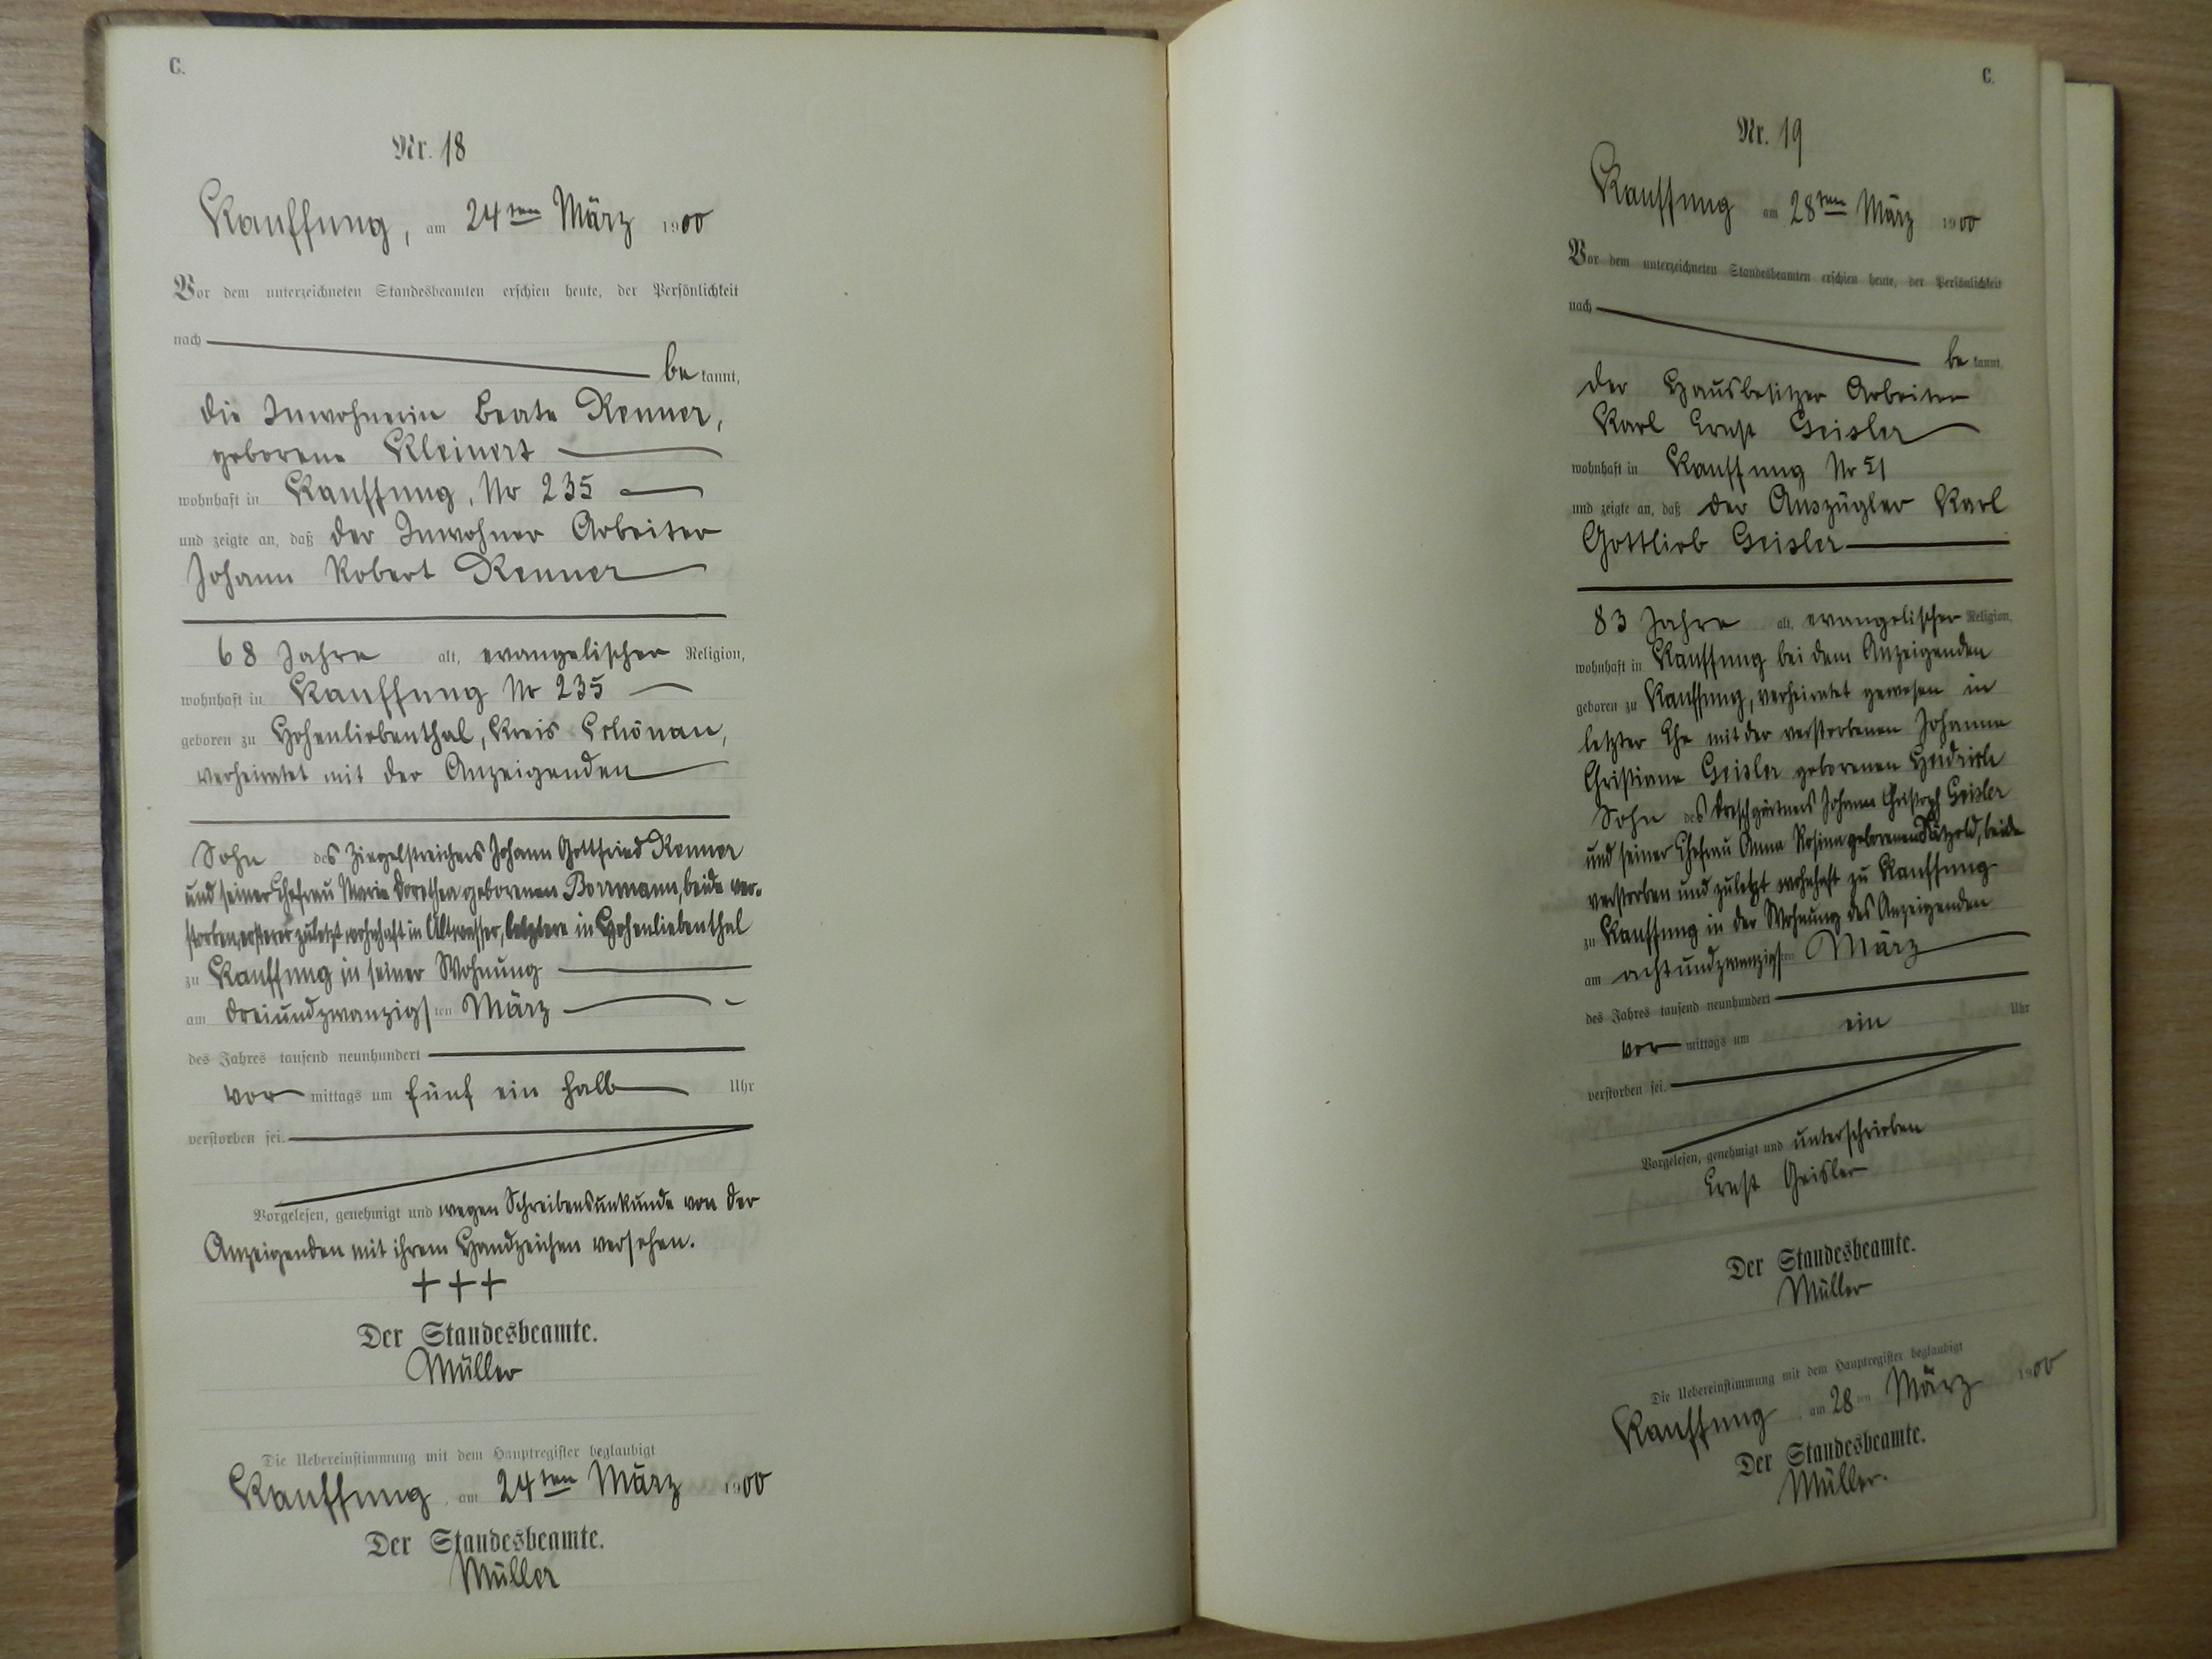 C.
Nr. 18
Kauffung, am 24ten März 1900
Vor dem unterzeichneten Standesbeamten erschien heute, der Persönlichkeit
nach
be kannt,
die Inwohnerin Beate Renner,
geborene Kleinert
wohnhaft in Kauffung, Nr 235
und zeigte an, daß der Inwohner Arbeiter
Johann Robert Renner
68 Jahre alt, evangelischer Religion,
wohnhaft in Kauffung Nr 235
geboren zu Hohenliebenthal, Kreis Schönau,
verheiratet mit der Anzeigenden
Sohn des Ziegelstreichers Johann Gottfried Renner
und seiner Ehefrau Marie Dorothea geborenen Borrmann, beide ver-
storben, ersterer zuletzt wohnhaft in Altwasser, letztere in Hohenliebenthal
zu Kauffung in seiner Wohnung
am dreiundzwanzigsten März
des Jahres tausend neunhundert
vor mittags um fünf ein halb Uhr
verstorben sei.
Vorgelesen, genehmigt und wegen Schreibensunkunde von der
Anzeigenden mit ihrem Handzeichen versehen.
+++
Der Standesbeamte.
Müller
Die Uebereinstimmung mit dem Hauptregister beglaubigt
Kauffung, am 24ten März 1900
Der Standesbeamte.
Müller
C.
Nr. 19
Kauffung am 28ten März 1900
Vor dem unterzeichneten Standesbeamten erschien heute, der Persönlichkeit
nach
be kannt,
der Hausbesitzer Arbeiter
Karl Ernst Geisler
wohnhaft in Kauffung Nr 51
und zeigte an, daß der Auszügler Karl
Gottlieb Geisler
83 Jahre alt, evangelischer Religion,
wohnhaft in Kauffung bei dem Anzeigenden
geboren zu Kauffung, verheiratet gewesen in
letzter Ehe mit der verstorbenen Johanne
Christiane Geisler geborenen Heidrich
Sohn des Dreschgärtners Johann Christoph Geisler
und seiner Ehefrau Anna Rosina geborenen Pätzold, beide
verstorben und zuletzt wohnhaft zu Kauffung
zu Kauffung in der Wohnung des Anzeigenden
am achtundzwanzigsten März
des Jahres tausend neunhundert
vor mittags um ein Uhr
verstorben sei.
Vorgelesen, genehmigt und unterschrieben
Ernst Geisler
Der Standesbeamte.
Müller
Die Uebereinstimmung mit dem Hauptregister beglaubigt
Kauffung, am 28ten März 1900
Der Standesbeamte.
Müller.